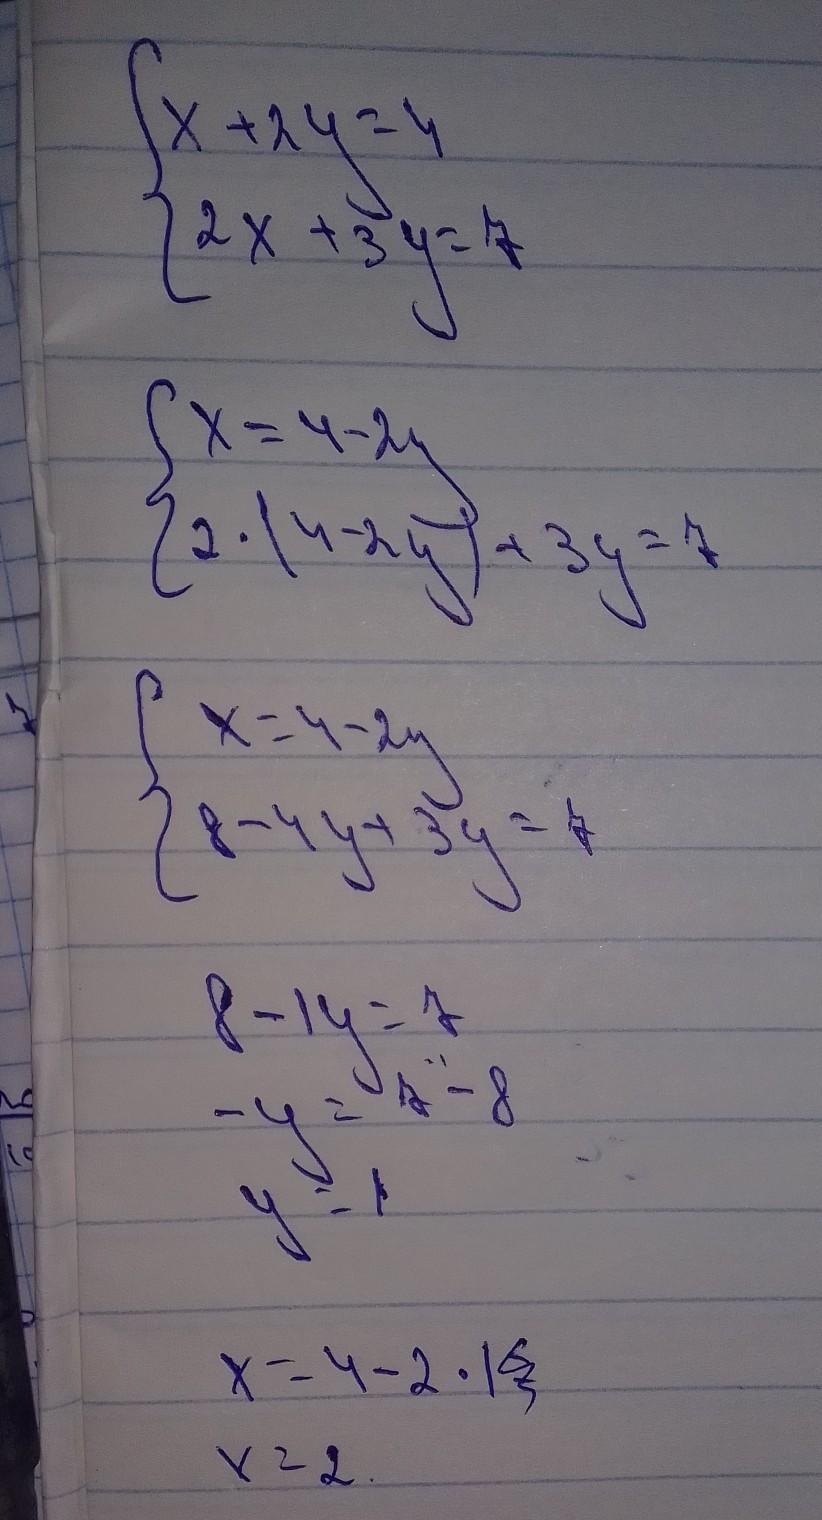 x + 2y = 4
2x + 3y = 7
x = 4 - 2y
2 · (4 - 2y) + 3y = 7
x = 4 - 2y
8 - 4y + 3y = 7
8 - 1y = 7
- y = 7 - 8
y = 1
x = 4 - 2 · 1
x = 2.